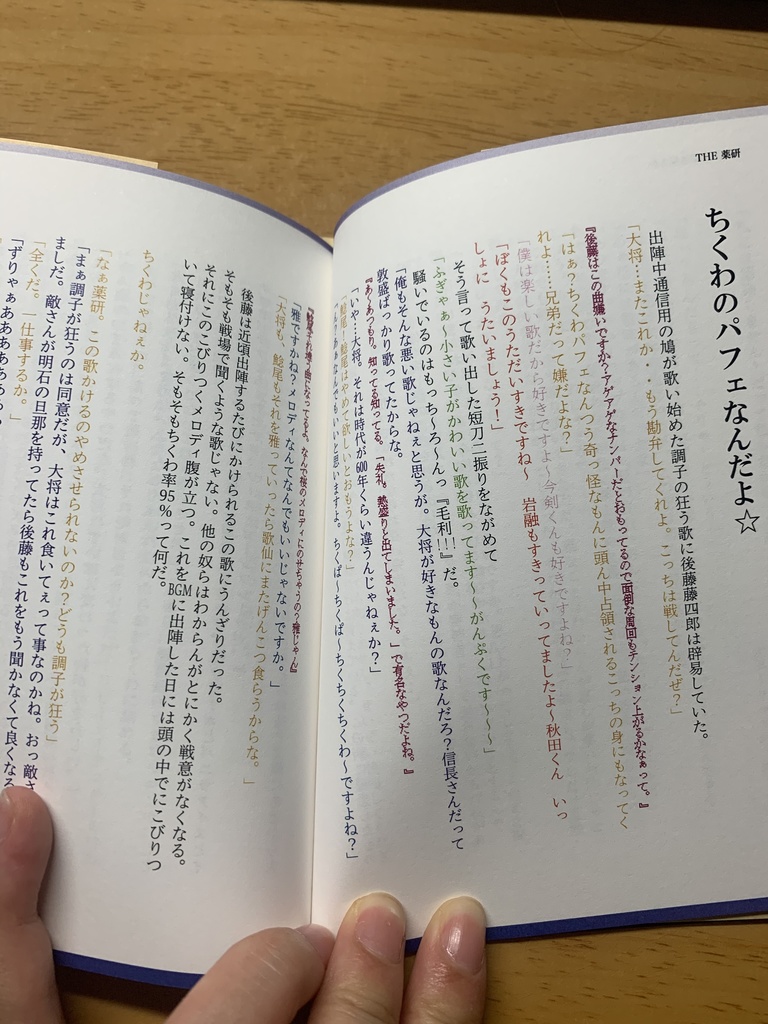 THE 薬研
ちくわのパフェなんだよ☆
出陣中通信用の鳩が歌い始めた調子の狂う歌に後藤藤四郎は辟易していた。
「大将…またこれか・・もう勘弁してくれよ。こっちは戦してんだぜ？」
『後藤はこの曲嫌いですか？アゲアゲなナンバーだとおもってるので面倒な周回もテンション上がるかなぁって。』
「はぁ？ちくわパフェなんつう奇っ怪なもんに頭ん中占領されるこっちの身にもなってく
れよ……兄弟だって嫌だよな？」
「僕は楽しい歌だから好きですよ～今剣くんも好きですよね？」
「ぼくもこのうただいすきですね～　岩融もすきっていってましたよ～秋田くん　いっ
しょに　うたいましょう！」
そう言って歌い出した短刀二振りをながめて
「ふぎゃぁ～小さい子がかわいい歌を歌ってます～～がんぷくです～～～」
騒いでいるのはもっち～ろ～んっ『毛利！！』だ。
「俺もそんな悪い歌じゃねぇと思うが。大将が好きなもんの歌なんだろ？信長さんだって
敦盛ばっかり歌ってたからな。
『あ～あつもり。知ってる知ってる。「失礼。熱盛りと出てしまいました。」で有名なやつだよね。』
「いや…大将。それは時代が600年くらい違うんじゃねぇか？」
なんでもいいと思いますよ。ちくぱ～ちくぱ～ちくちくちくわ～ですよね？」
「鯰尾…鯰尾はやめて欲しいとおもうよな？」
なんで桜のメロディにのせちゃうの？雅じゃん』
「雅ですかね？メロディなんてなんでもいいじゃないですか。」
「大将も、鯰尾もそれを雅っていったら歌仙にまたげんこつ食らうからな。」
後藤は近頃出陣するたびにかけられるこの歌にうんざりだった。
そもそも戦場で聞くような歌じゃない。他の奴らはわからんがとにかく戦意がなくなる。
それにこのこびりつくメロディ腹が立つ。これをBGMに出陣した日には頭の中でにこびりつ
いて寝付けない。そもそもちくわ率95%って何だ。
ちくわじゃねぇか。
「なぁ薬研。この歌かけるのやめさせられないのか？どうも調子が狂う」
「まぁ調子が狂うのは同意だが、大将はこれ食いてぇって事なのかね。おっ敵さ
ました。敵さんが明石の旦那を持ってたら後藤もこれをもう聞かなくて良くなる
「全くだ。一仕事するか。」
「ずりゃぁああああぁっ